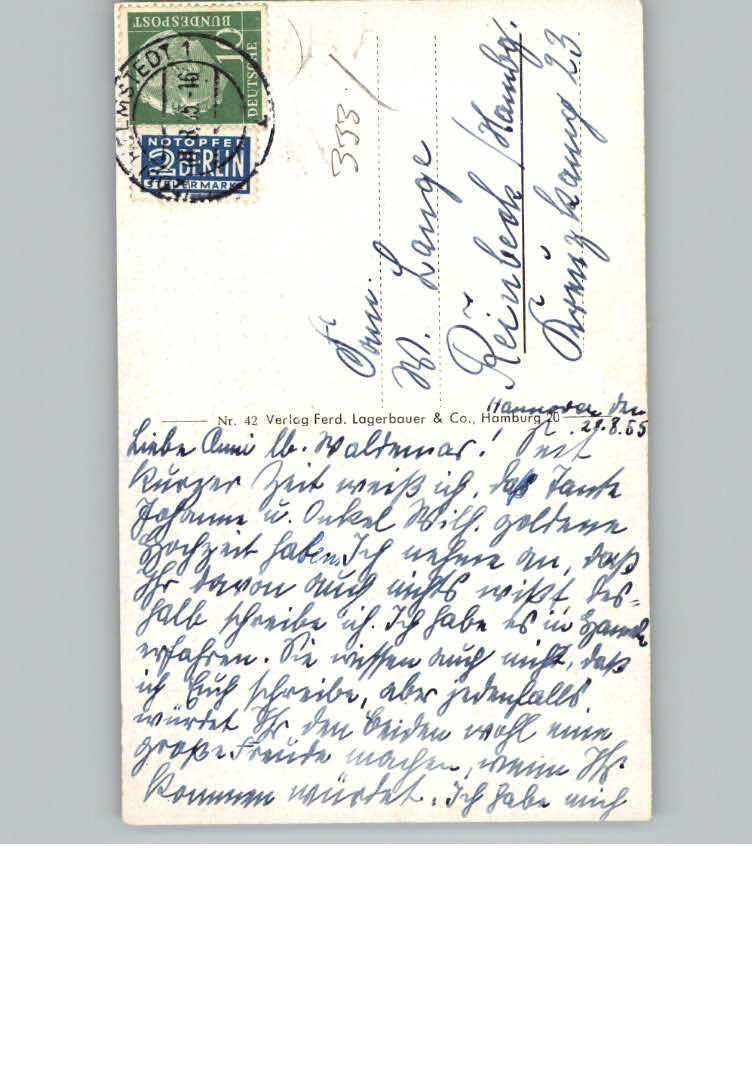 DEUTSCHE
BUNDESPOST
10
HELMSTEDT 1
NOTOPFER
2 BERLIN
STEUERMARKE
333
Fam.
W. Lange
Reinbeck/Hambg.
Kreuzkamp 23
Nr. 42 Verlag Ferd. Lagerbauer & Co., Hamburg 20
Hannover den
29.8.55
Liebe Anni lb. Waldemar! Seit
kurzer Zeit weiß ich, daß Tante
Johanne u. Onkel Wilh. goldene
Hochzeit haben. Ich nehme an, daß
Ihr davon auch nichts wißt, des-
halb schreibe ich. Ich habe es in
erfahren. Sie wissen auch nicht, daß
ich Euch schreibe, aber jedenfalls
würdet Ihr den beiden wohl eine
große Freude machen, wenn Ihr
kommen würdet. Ich habe mich